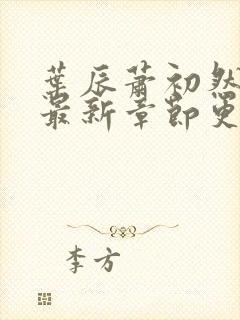 葉辰蕭初然
最新章節更
李方